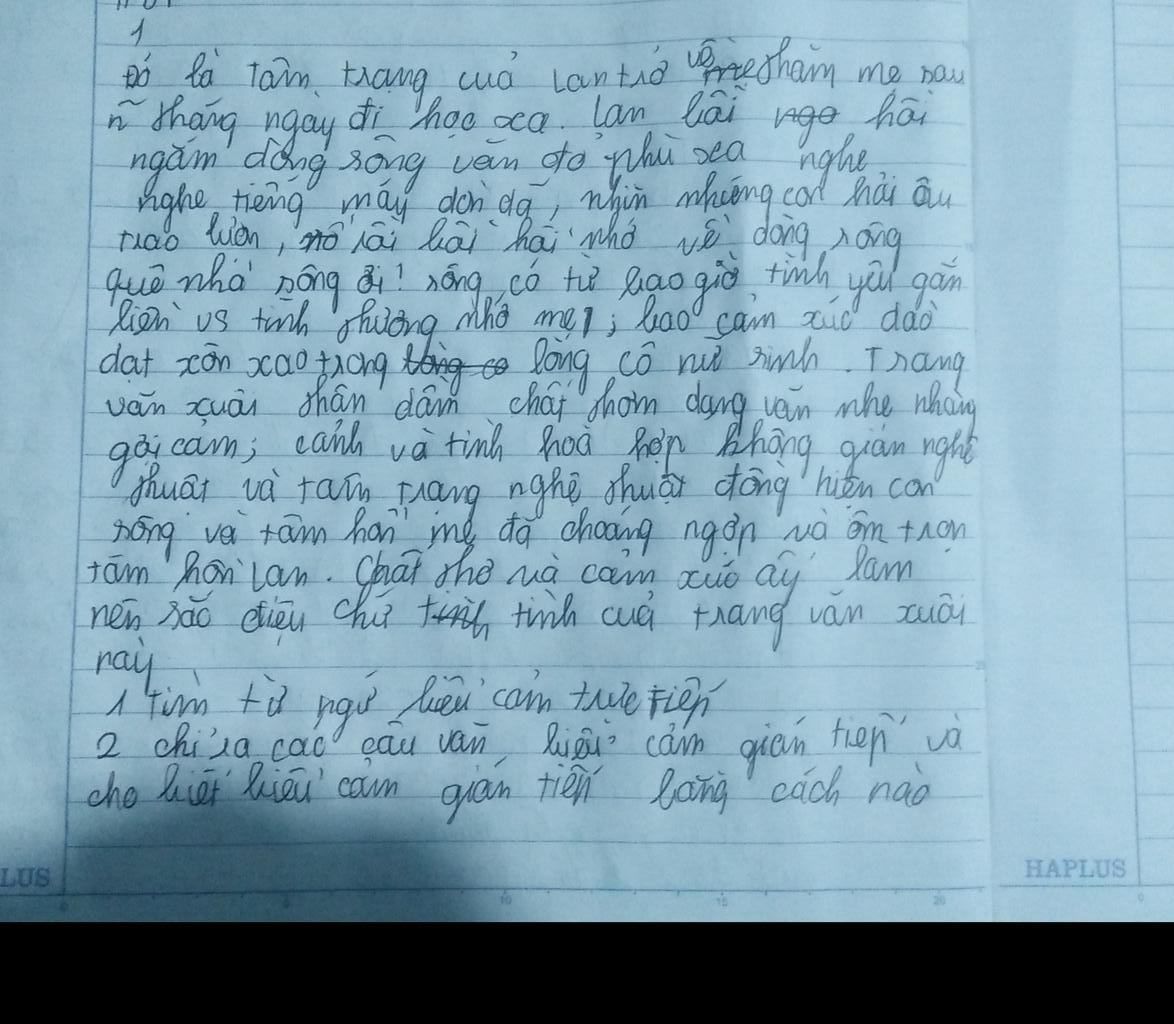 1
Đó là tâm trạng của Lan trở về thăm mẹ sau
n~ tháng ngày đi học xa. Lan bồi hồi
ngắm dòng sông vẫn đỏ phù sa nghe
nghe tiếng máy dòn dã, nhìn những con hải âu
chao lượn, rồi bồi hồi nhớ về dòng sông
quê nhà sông ơi! sông có từ bao giờ tình yêu gắn
liền vs tình thương nhớ mẹ, bao cảm xúc dào
dạt xôn xao trong lòng cô nữ sinh. Trang
văn xuôi thấn đẫm chất thơm dạng văn nhẹ nhàng
gợi cảm; cảnh và tình hoà hợp không gián nghệ
thuật và tâm trạng nghệ thuật đồng hiện con
sông và tâm hồn mẹ đã choáng ngợp và ôm trọn
tâm hồn Lan. Chất thơ và cảm xúc ấy làm
nên sắc điệu chữ tình của trang văn xuôi
này
1 Tìm từ ngữ biểu cảm trực tiếp
2 chỉ ra các câu văn biểu cảm gián tiếp và
cho biết biểu cảm gián tiếp bằng cách nào
LUS
HAPLUS
10
15
20